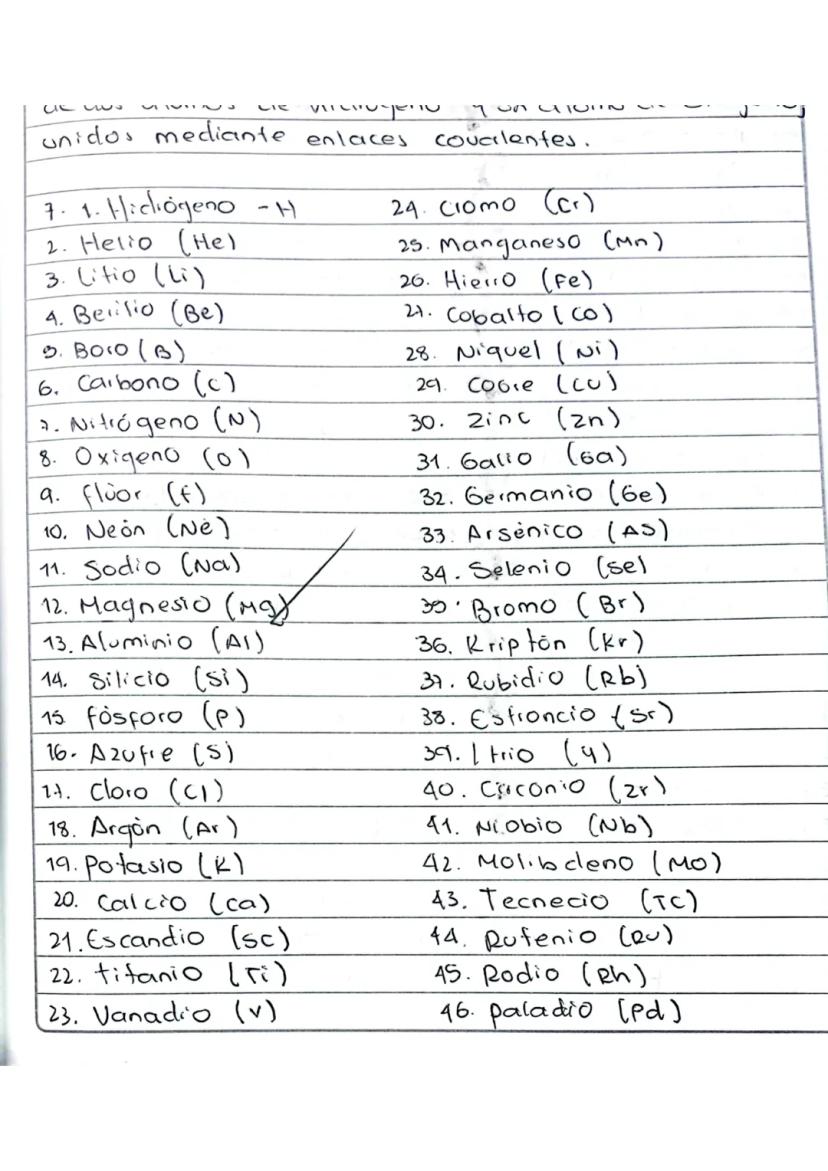 unidos mediante enlaces covalentes.
7. 1. Hidrógeno - H
2. Helio (He)
3. Litio (Li)
4. Berilio (Be)
5. Boro (B)
6. Carbono (C)
7. Nitrógeno (N)
8. Oxigeno (O)
9. flúor (f)
10. Neón (Ne)
11. Sodio (Na)
12. Magnesio (Mg)
13. Aluminio (Al)
14. Silicio (Si)
15 fósforo (P)
16. Azufre (S)
17. Cloro (Cl)
18. Argón (Ar)
19. Potasio (K)
20. Calcio (Ca)
21. Escandio (Sc)
22. titanio (Ti)
23. Vanadio (V)
24. Cromo (Cr)
25. Manganeso (Mn)
26. Hierro (Fe)
27. Cobalto (CO)
28. Niquel (Ni)
29. Cobre (Cu)
30. Zinc (Zn)
31. Galio (Ga)
32. Germanio (Ge)
33. Arsénico (AS)
34. Selenio (Se)
35. Bromo (Br)
36. Kriptón (Kr)
37. Rubidio (Rb)
38. Estroncio (Sr)
39. Itrio (y)
40. Circonio (Zr)
41. Niobio (Nb)
42. Molibdeno (MO)
43. Tecnecio (TC)
44. Rutenio (Ru)
45. Rodio (Rh)
46. paladio (Pd)